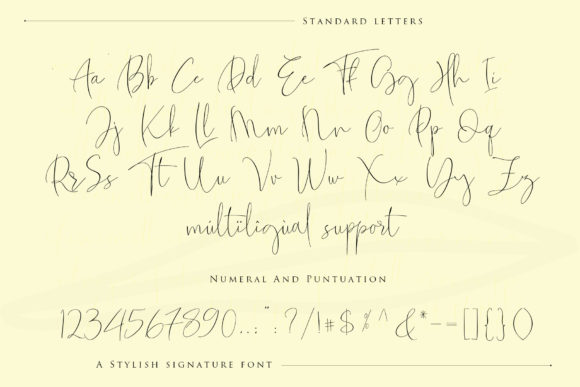 Standard letters
Aa Bb Cc Dd Ee Ff Gg Hh Ii
Jj Kk Ll Mm Nn Oo Pp Qq
Rr Ss Tt Uu Vv Ww Xx Yy Zz
multiligual support
Numeral And Puntuation
1234567890..:;":?/!#$%^&*--=[]{}()
A Stylish signature font